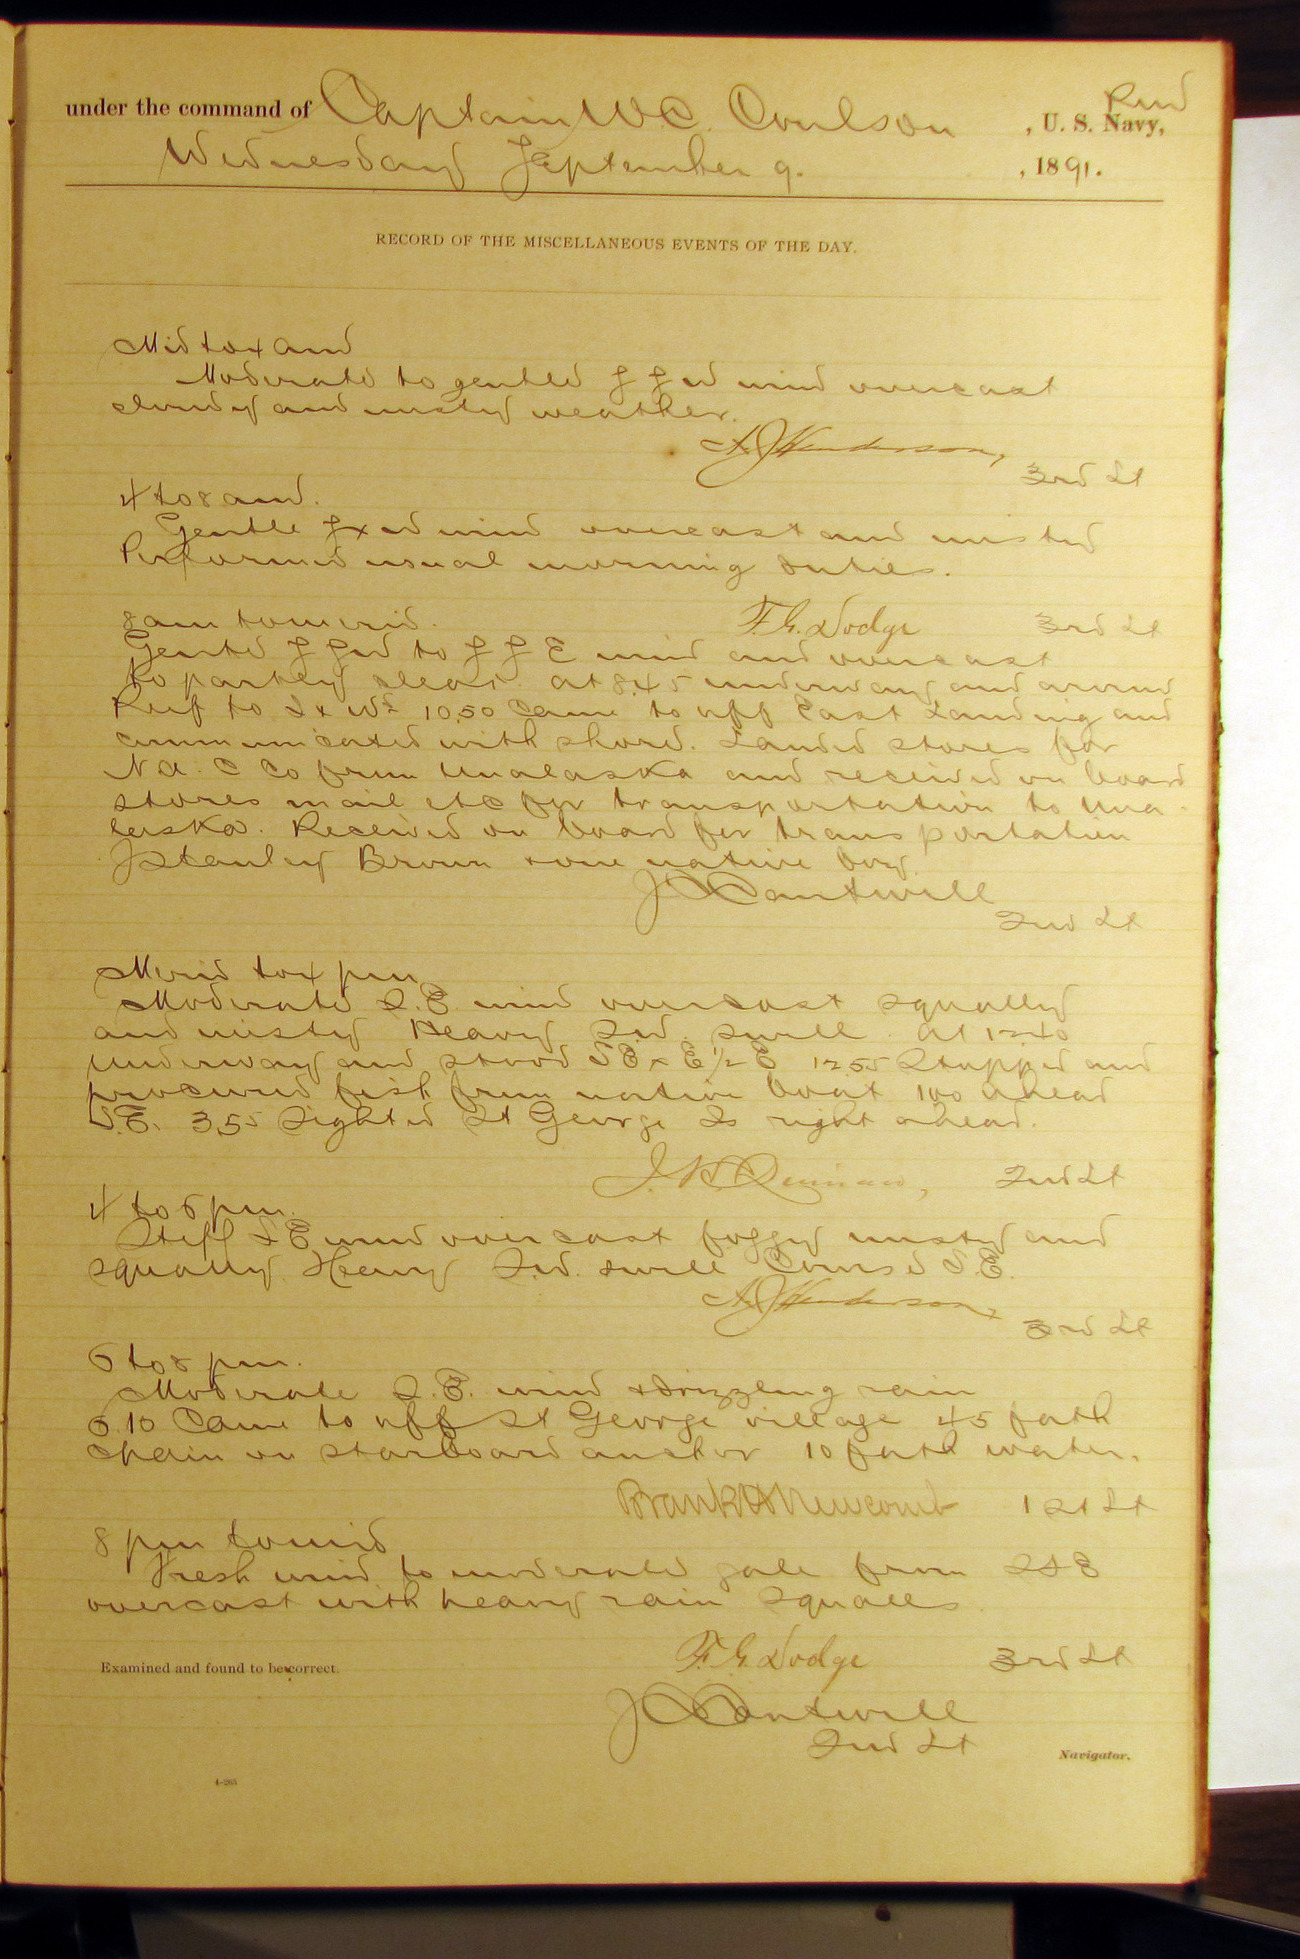 under the command of Captain W.C. Coulson, U. S. Navy, Rev
Wednesday September 9. , 1891.
RECORD OF THE MISCELLANEOUS EVENTS OF THE DAY.
Mid to 4 am
Moderate to gentle S S W wind overcast
cloudy and misty weather.
A J Henderson,
3rd Lt
4 to 8 am.
Gentle S x W wind overcast and misty
Performed usual morning duties.
F. G. Dodge 3rd Lt
8 am to merid.
Gentle S S W to S S E wind and overcast
to partly clear. at 8.45 underway and around
Reef to 10.50 Came to off East Landing and
communicated with shore. Landed stores for
N.A. C Co from Unalaska and received on board
stores mail etc for transportation to Una-
laska. Received on board for transportation
J Stanley Brown + one native boy
J C Cantwell
2nd Lt
Merid to 4 pm
Moderate S.E. wind overcast squally
and misty Heavy S.W. swell at 12 40
underway and stood S E x E 1/2 E 12 55 Stopped and
procured fish from native boat 1 00 ahead
S.E. 3.55 Sighted St George Is right ahead.
J. H. Quinan, 2nd Lt
4 to 6 pm.
Stiff S E wind overcast foggy misty and
squally Heavy S.W. swell Course S.E.
A J Henderson,
3rd Lt
6 to 8 pm.
Moderate S.E. wind + drizzling rain
6 10 Came to off St George village 45 fath
chain on starboard anchor 10 fath water.
Frank H Newcomb 1st Lt
8 pm to mid
Fresh wind to moderate gale from S S E
overcast with heavy rain squalls
F. G. Dodge 3rd Lt
Examined and found to be correct.
J C Cantwell
2nd Lt Navigator.
4-265